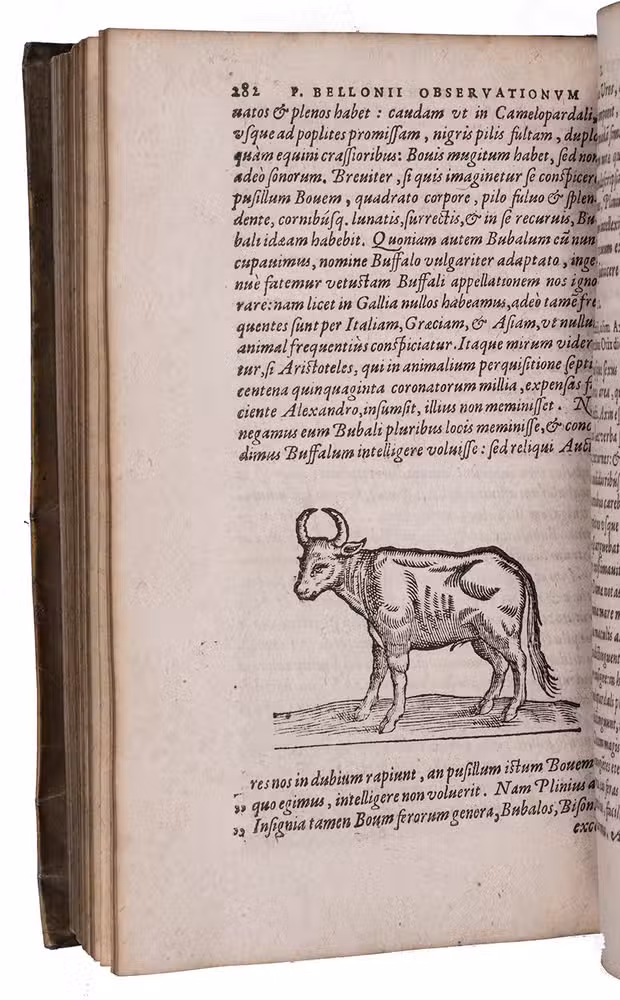 282 P. BELLONII OBSERVATIONVM
natos & plenos habet : caudam vt in Camelopardali,
vsque ad poplites promissam, nigris pilis fultam, dupl
quàm equini crassioribus: Bouis mugitum habet, sed non
adeò sonorum. Breuiter, si quis imaginetur se conspicer
pusillum Bouem, quadrato corpore, pilo fuluo & splen
dente, cornibúsq. lunatis, surrectis, & in se recuruis, Bu
bali idæam habebit. Quoniam autem Bubalum cũ nun
cupauimus, nomine Buffalo vulgariter adaptato, inge
nuè fatemur vetustam Buffali appellationem nos igno
rare: nam licet in Gallia nullos habeamus, adeò tamẽ fre
quentes sunt per Italiam, Græciam, & Asiam, vt nullu
animal frequentiùs conspiciatur. Itaque mirum vider
tur, si Aristoteles, qui in animalium perquisitione septi
centena quinquaginta coronatorum millia, expensas f
ciente Alexandro, insumsit, illius non meminisset. N
negamus eum Bubali pluribus locis meminisse, & conc
dimus Buffalum intelligere voluisse : sed reliqui Auct
res nos in dubium rapiunt, an pusillum istum Bouem
,, quo egimus, intelligere non voluerit. Nam Plinius a
,, Insignia tamen Boum ferorum genera, Bubalos, Bison
exc